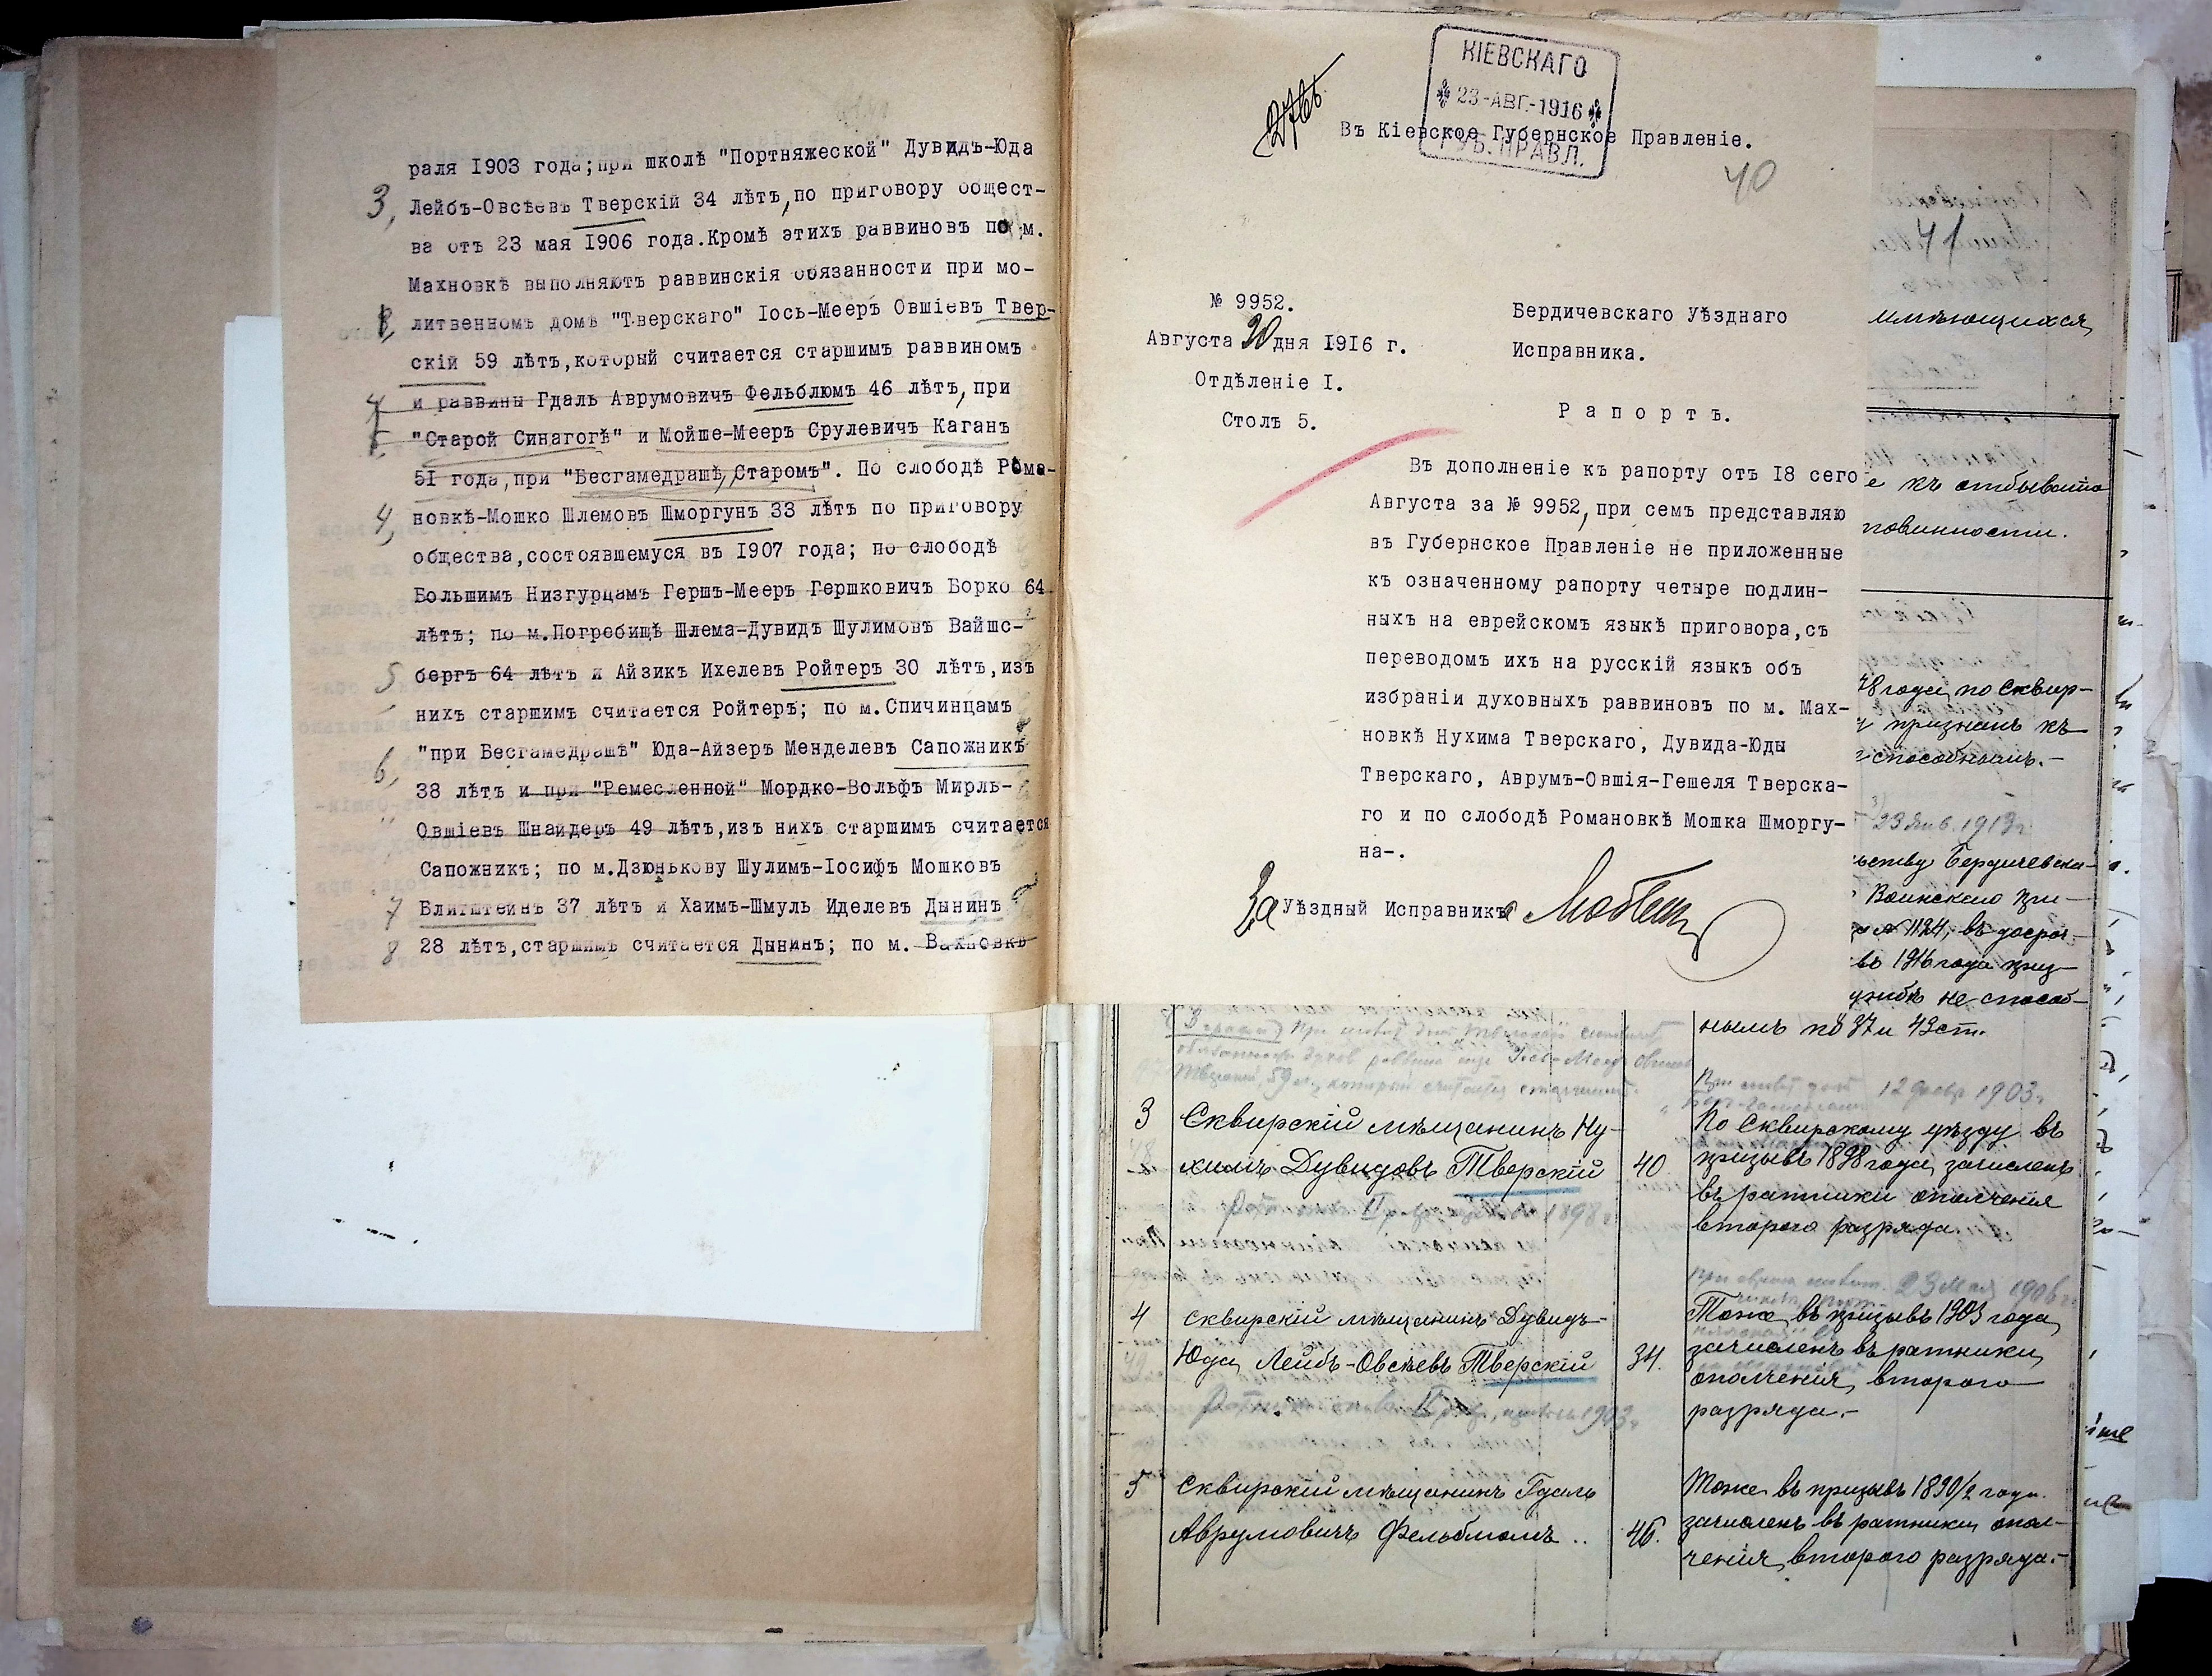 раля 1903 года; при школѣ "Портняжеской" Дувидъ-Юда
3, Лейбъ-Овсѣевъ Тверскій 34 лѣтъ, по приговору общест-
ва отъ 23 мая 1906 года. Кромѣ этихъ раввиновъ по м.
Махновкѣ выполняютъ раввинскія обязанности при мо-
литвенномъ домѣ "Тверскаго" Іось-Мееръ Овшіевъ Твер-
скій 59 лѣтъ, который считается старшимъ раввиномъ
и раввины Гдаль Аврумовичъ Фельблюмъ 46 лѣтъ, при
"Старой Синагогѣ" и Мойше-Мееръ Срулевичъ Каганъ
51 года, при "Бесгамедрашѣ Старомъ". По слободѣ Рома-
4, новкѣ-Мошко Шлемовъ Шморгунъ 33 лѣтъ по приговору
общества, состоявшемуся въ 1907 года; по слободѣ
Большимъ Низгурцамъ Гершъ-Мееръ Гершковичъ Борко 64
лѣтъ; по м. Погребищѣ Шлема-Дувидъ Шулимовъ Вайшс-
5 бергъ 64 лѣтъ и Айзикъ Ихелевъ Ройтеръ 30 лѣтъ, изъ
нихъ старшимъ считается Ройтеръ; по м. Спичинцамъ
6, "при Бесгамедрашѣ" Юда-Айзеръ Менделевъ Сапожникъ
38 лѣтъ и при "Ремесленной" Мордко-Вольфъ Мирль-
Овшіевъ Шнайдеръ 49 лѣтъ, изъ нихъ старшимъ считается
Сапожникъ; по м. Дзюнькову Шулимъ-Іосифъ Мошковъ
7 Блитштейнъ 37 лѣтъ и Хаимъ-Шмуль Иделевъ Дынинъ
8 28 лѣтъ, старшимъ считается Дынинъ; по м. Вахновкѣ
КІЕВСКАГО
23-АВГ.-1916
ГУБ. ПРАВЛ.
Въ Кіевское Губернское Правленіе.
40
№ 9952.
Августа 20 дня 1916 г.
Отдѣленіе I.
Столъ 5.
Бердичевскаго Уѣзднаго
Исправника.
Рапортъ.
Въ дополненіе къ рапорту отъ 18 сего
Августа за № 9952, при семъ представляю
въ Губернское Правленіе не приложенные
къ означенному рапорту четыре подлин-
ныхъ на еврейскомъ языкѣ приговора, съ
переводомъ ихъ на русскій языкъ объ
избраніи духовныхъ раввиновъ по м. Мах-
новкѣ Нухима Тверскаго, Дувида-Юды
Тверскаго, Аврумъ-Овшія-Гешеля Тверска-
го и по слободѣ Романовкѣ Мошка Шморгу-
на-.
За Уѣздный Исправникъ
41
имѣющихся
е къ отбыванію
повинности.
98 года, по Сквир-
признанъ къ
способнымъ.-
23 Янв. 1913 г.
Бердичевска-
Воинскаго при-
1124, въ досроч-
въ 1916 года приз-
не способ-
нымъ по 37 и 43 ст.
12 февр 1903 г.
3 Сквирскій мѣщанинъ Ну-
химъ Дувидовъ Тверскій
40.
По Сквирскому уѣзду въ
призывъ 1898 года, зачисленъ
въ ратники ополченія
второго разряда.
23 Мая 1906 г.
4 Сквирскій мѣщанинъ Дувидъ-
Юда Лейбъ-Овсѣевъ Тверскій
34.
Тоже, въ призывъ 1903 года,
зачисленъ въ ратники
ополченія, второго
разряда.-
5 Сквирскій мѣщанинъ Гдаль
Аврумовичъ Фельблюмъ..
46.
Тоже въ призывъ 1890/2 года
зачисленъ въ ратники опол-
ченія, второго разряда.-